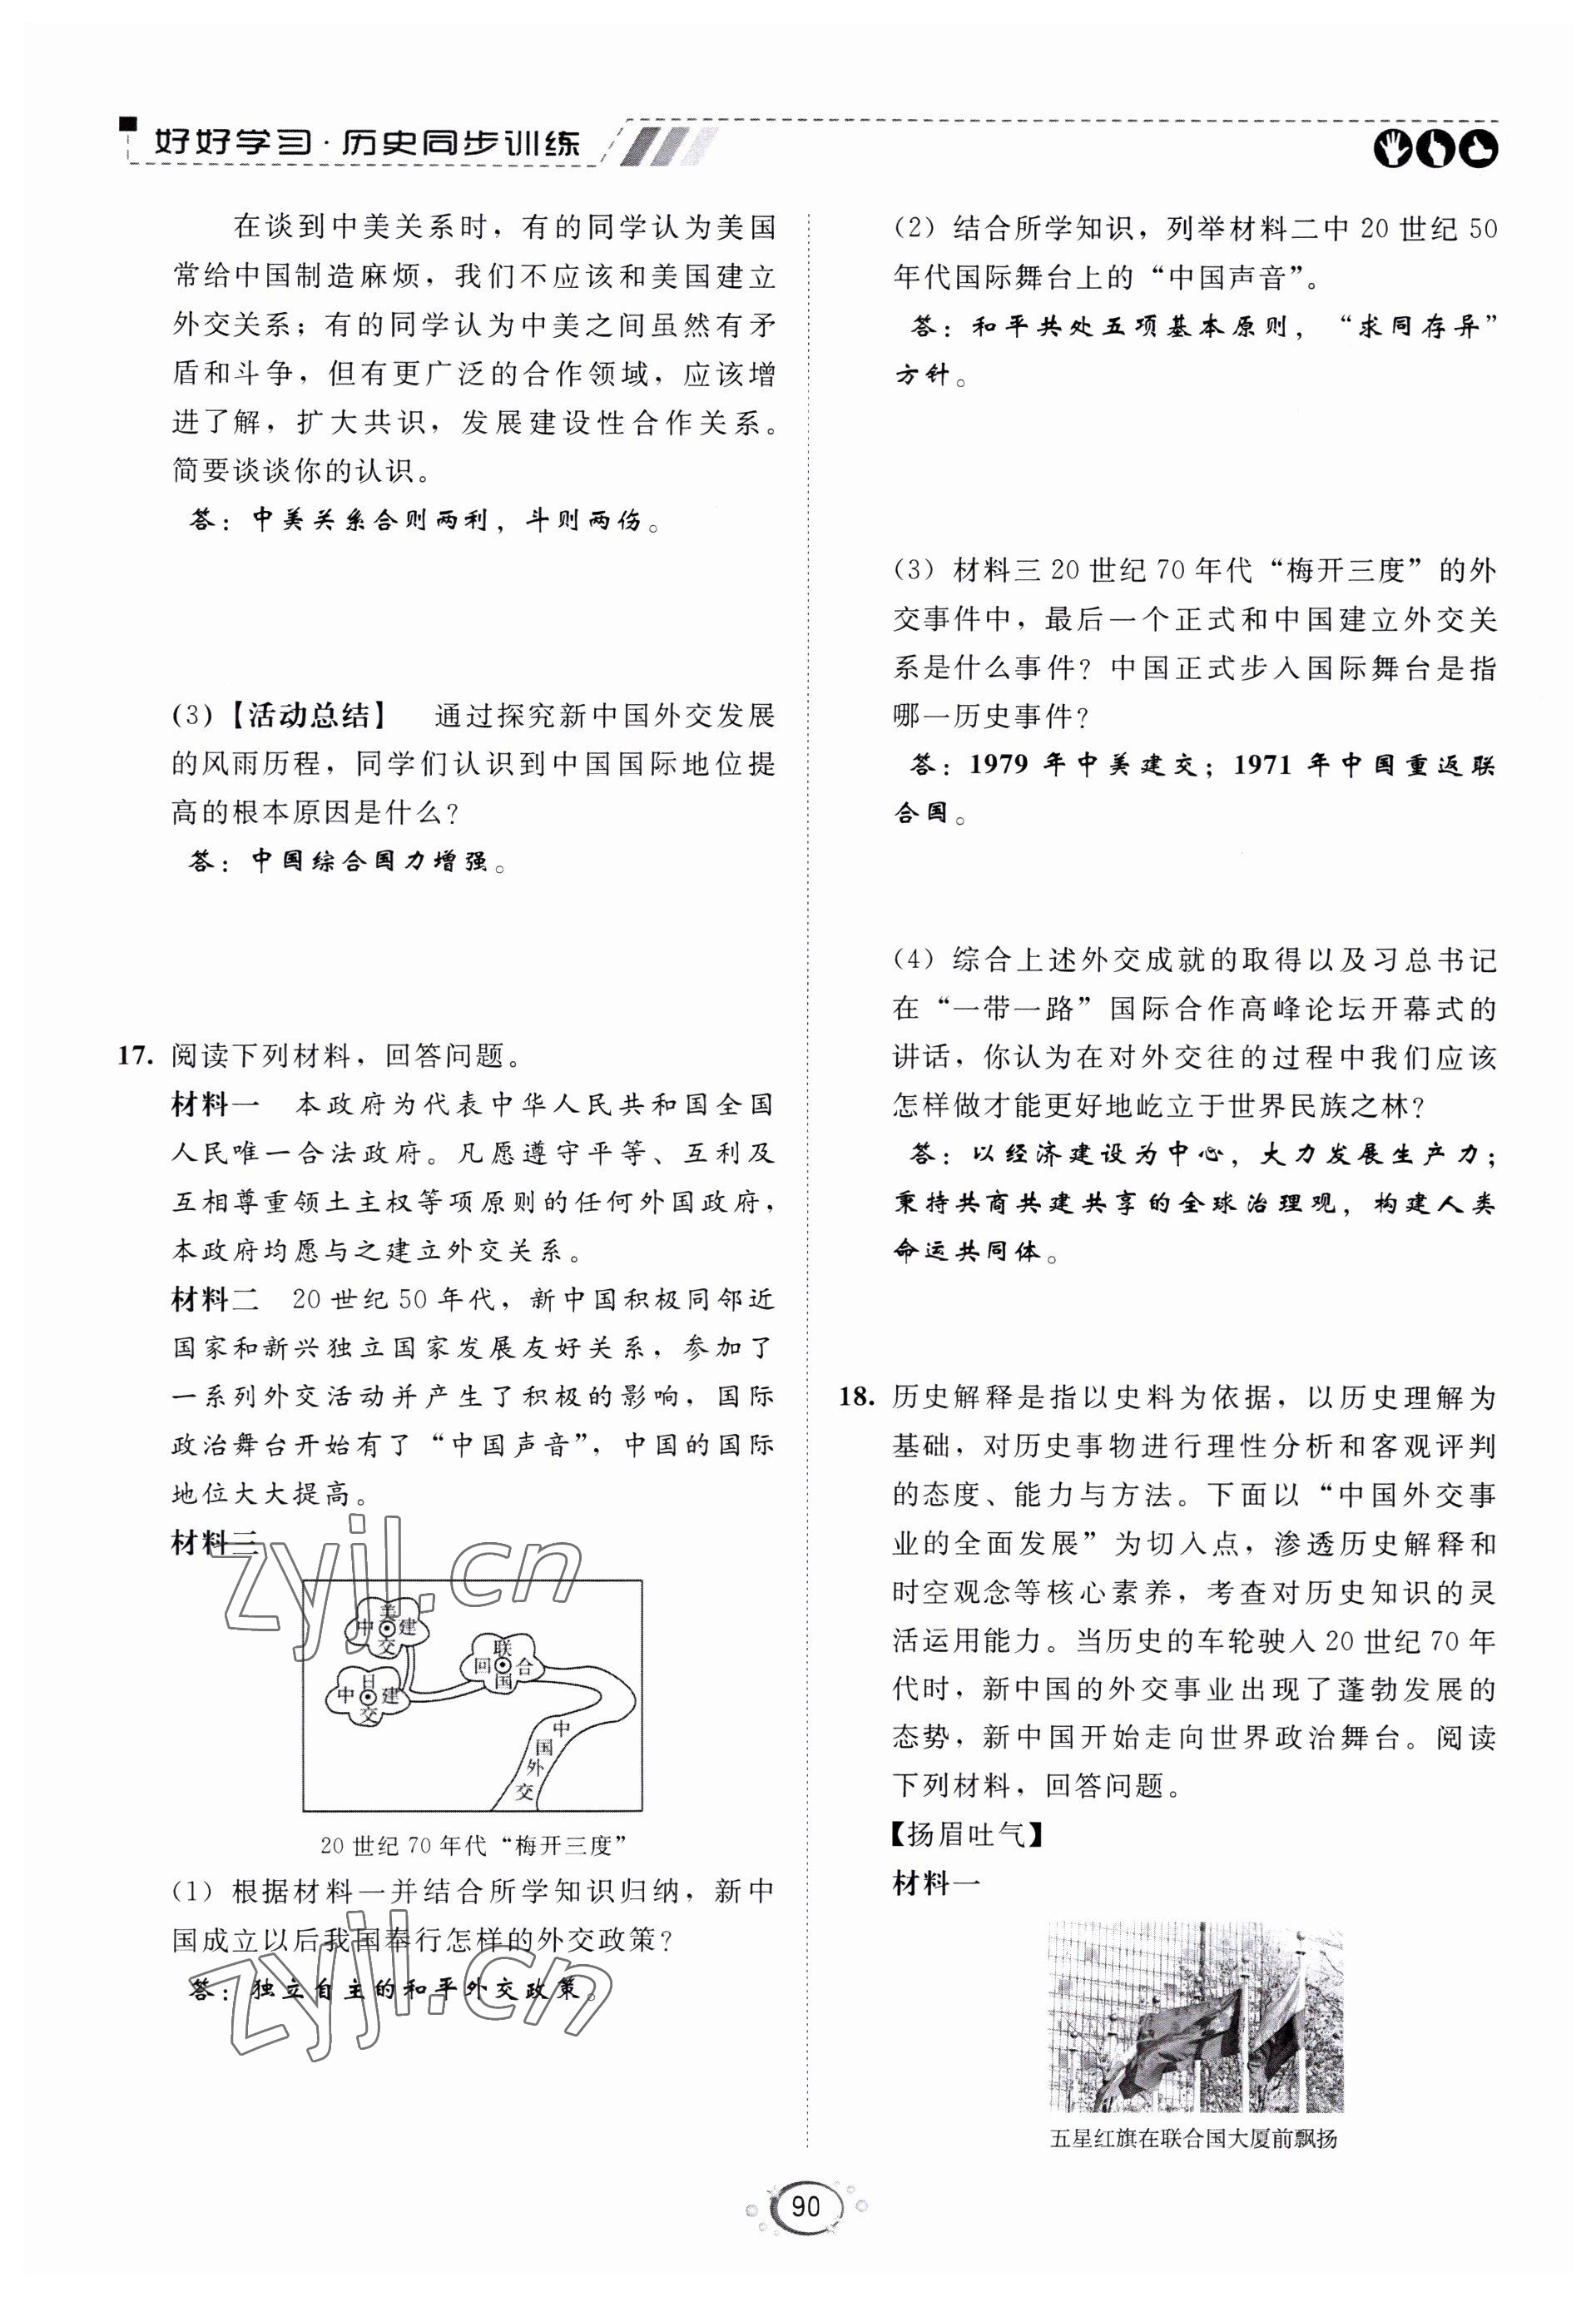 好好学习·历史同步训练
在谈到中美关系时，有的同学认为美国
常给中国制造麻烦，我们不应该和美国建立
外交关系；有的同学认为中美之间虽然有矛
盾和斗争，但有更广泛的合作领域，应该增
进了解，扩大共识，发展建设性合作关系。
简要谈谈你的认识。
答：中美关系合则两利，斗则两伤。
(3)【活动总结】 通过探究新中国外交发展
的风雨历程，同学们认识到中国国际地位提
高的根本原因是什么？
答：中国综合国力增强。
17. 阅读下列材料，回答问题。
材料一 本政府为代表中华人民共和国全国
人民唯一合法政府。凡愿遵守平等、互利及
互相尊重领土主权等项原则的任何外国政府，
本政府均愿与之建立外交关系。
材料二 20世纪50年代，新中国积极同邻近
国家和新兴独立国家发展友好关系，参加了
一系列外交活动并产生了积极的影响，国际
政治舞台开始有了“中国声音”，中国的国际
地位大大提高。
材料三
zyjl.cn
中美建交
联合国回
中日建交
中国外交
20世纪70年代“梅开三度”
(1) 根据材料一并结合所学知识归纳，新中
国成立以后我国奉行怎样的外交政策？
答：独立自主的和平外交政策。
zyjl.cn
(2) 结合所学知识，列举材料二中20世纪50
年代国际舞台上的“中国声音”。
答：和平共处五项基本原则，“求同存异”
方针。
(3) 材料三20世纪70年代“梅开三度”的外
交事件中，最后一个正式和中国建立外交关
系是什么事件？中国正式步入国际舞台是指
哪一历史事件？
答：1979年中美建交；1971年中国重返联
合国。
(4) 综合上述外交成就的取得以及习总书记
在“一带一路”国际合作高峰论坛开幕式的
讲话，你认为在对外交往的过程中我们应该
怎样做才能更好地屹立于世界民族之林？
答：以经济建设为中心，大力发展生产力；
秉持共商共建共享的全球治理观，构建人类
命运共同体。
18. 历史解释是指以史料为依据，以历史理解为
基础，对历史事物进行理性分析和客观评判
的态度、能力与方法。下面以“中国外交事
业的全面发展”为切入点，渗透历史解释和
时空观念等核心素养，考查对历史知识的灵
活运用能力。当历史的车轮驶入20世纪70年
代时，新中国的外交事业出现了蓬勃发展的
态势，新中国开始走向世界政治舞台。阅读
下列材料，回答问题。
【扬眉吐气】
材料一
五星红旗在联合国大厦前飘扬
90